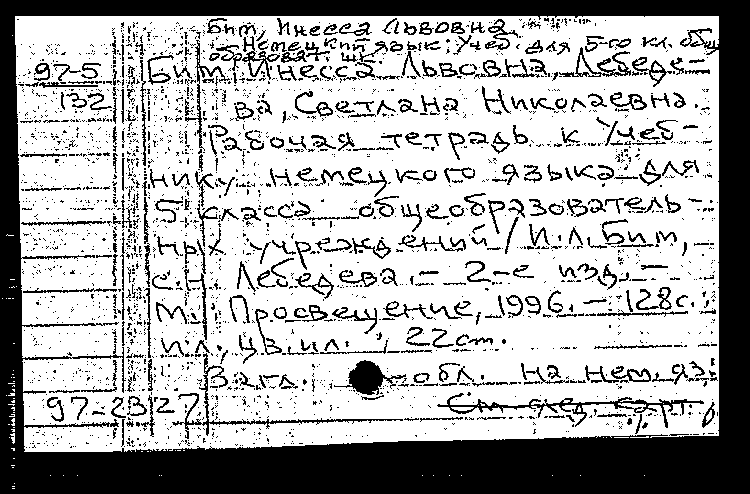 Бим, Инесса Львовна
Немецкий язык: Учеб. для 5-го кл. общ
образоват. шк.
97-5 Бим, Инесса Львовна, Лебеде-
132 ва, Светлана Николаевна.
Рабочая тетрадь к Учеб-
нику немецкого языка для
5 класса общеобразователь-
ных учреждений / И.Л. Бим,
С.Н. Лебедева. - 2-е изд. -
М.: Просвещение, 1996. - 128с.:
ил., цв.ил. ; 22см.
Загл. обл. на нем. яз.
97-2327 См след. карт.